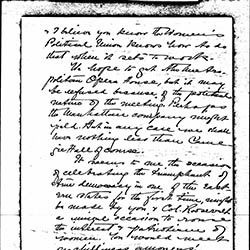 I believe you know the Women's
Political Union knows how to do
that when it sets to work.
We hope to get the Metro-
politan Opera House, but it may
be refused because of the political
nature of the meeting. Perhaps
the Manhattan company might
yield. But in any case we shall
have nothing less than Carne-
gie Hall of course.
It seems to me the occasion
of celebrating the triumph of
true democracy in one of the East-
ern states for the first time, might
be made by you & Col. Roosevelt
a unique occasion to rouse
the interest & patriotism of
women. You would make